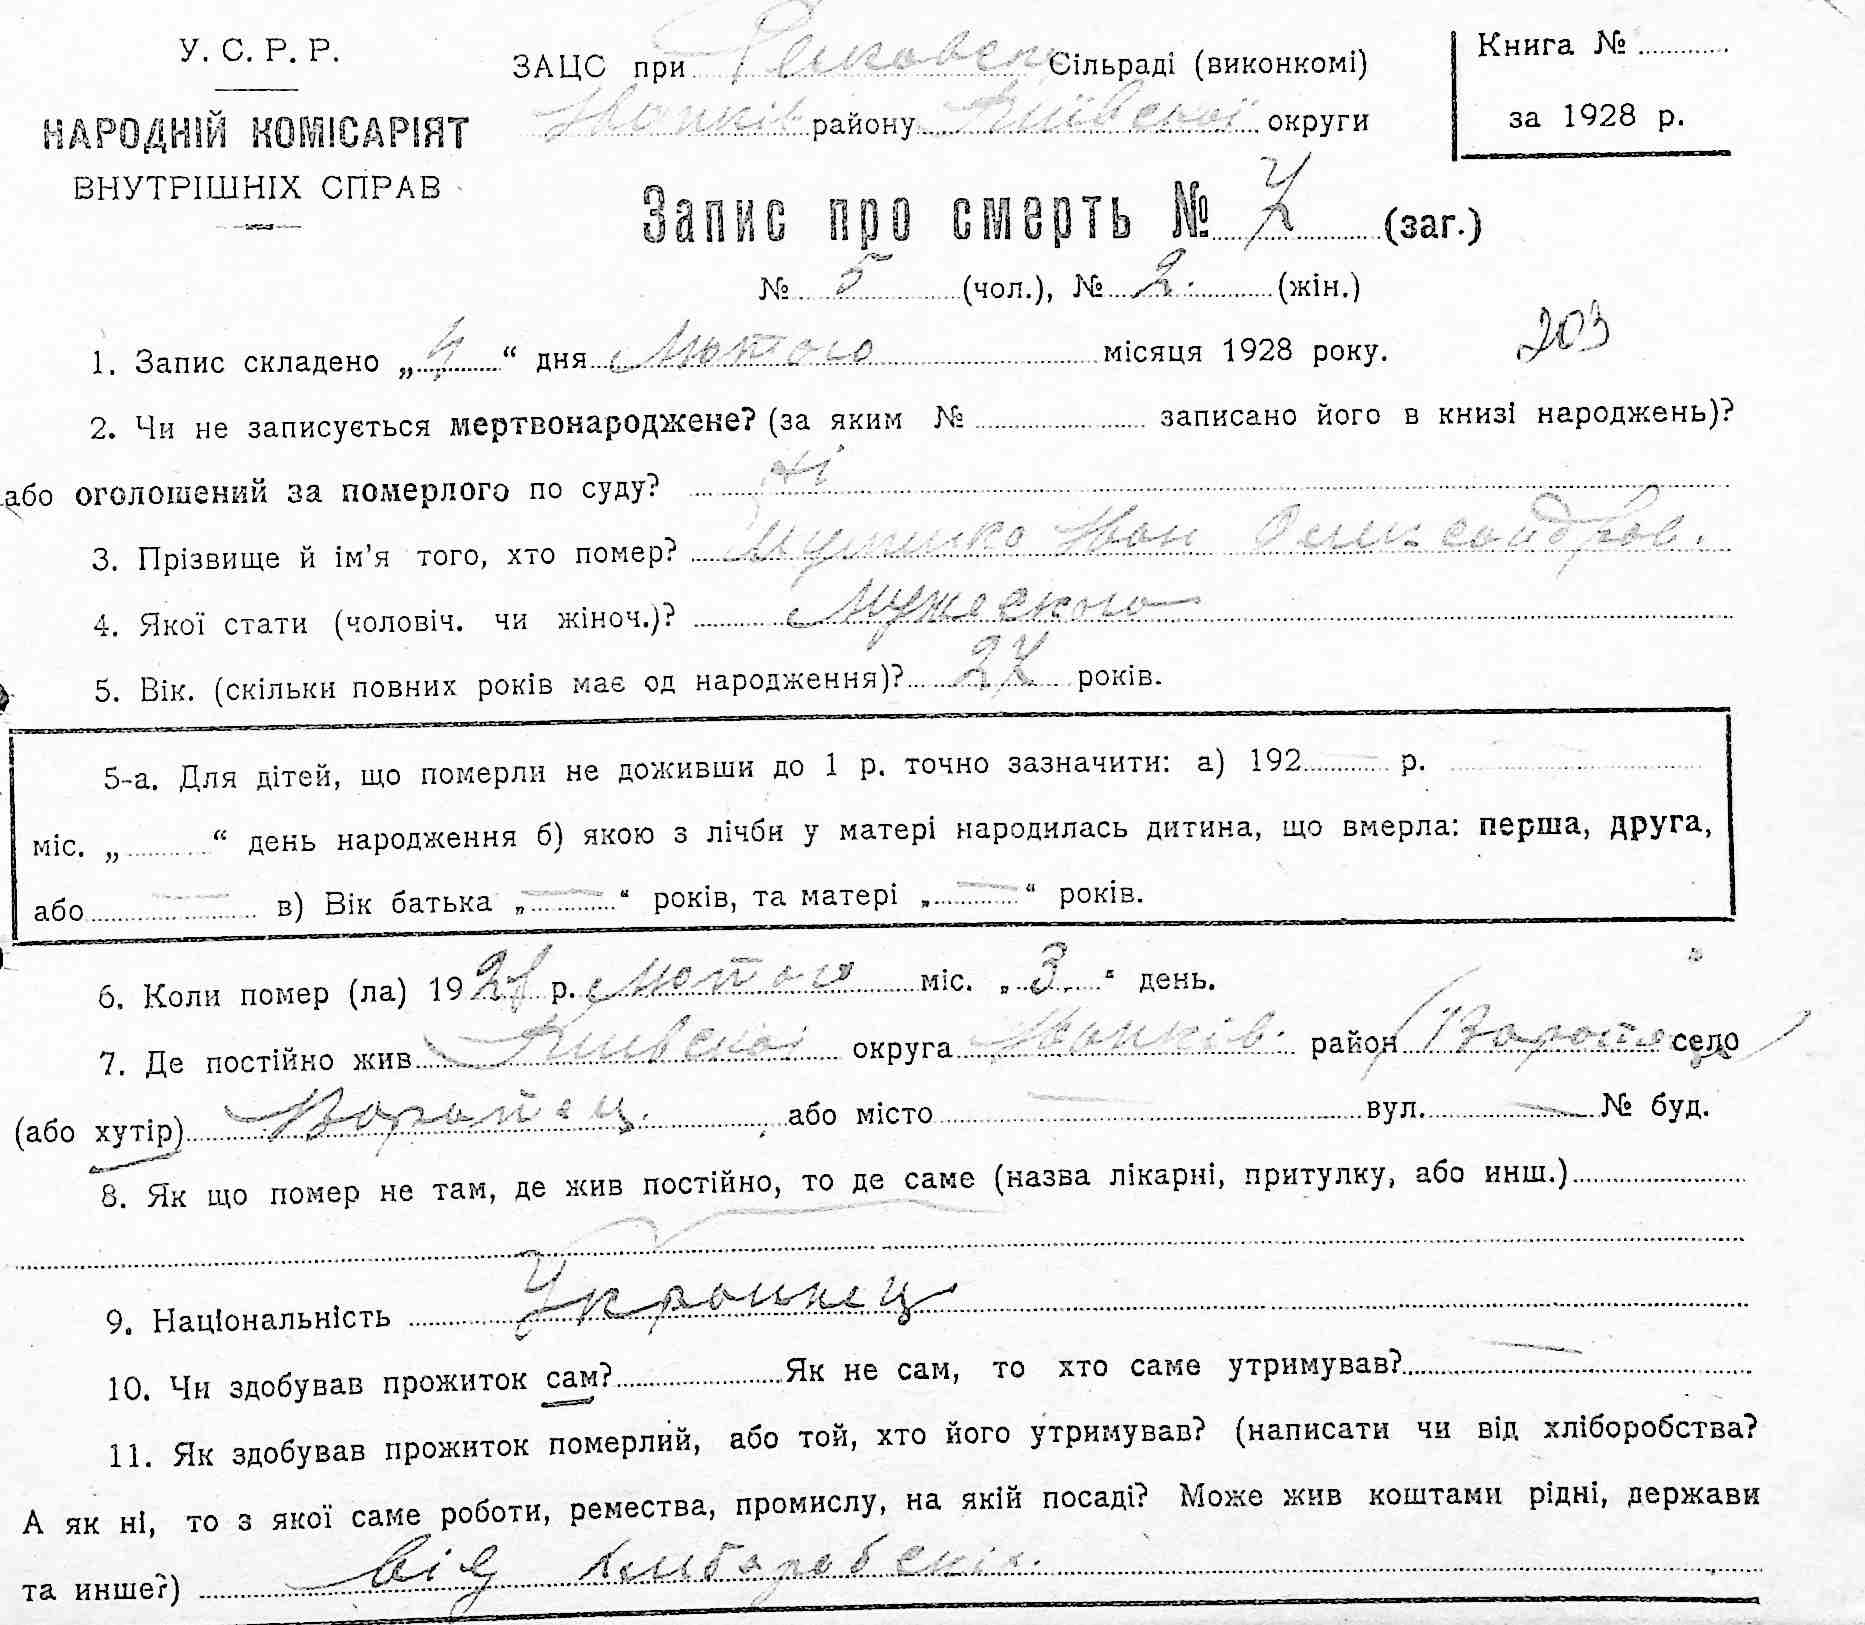 У. С. Р. Р.
НАРОДНІЙ КОМІСАРІЯТ
ВНУТРІШНІХ СПРАВ
ЗАЦС при Сільраді (виконкомі)
району Київської округи
Книга №
за 1928 р.
Запис про смерть № 7 (заг.)
№ 5 (чол.), № 2. (жін.)
203
1. Запис складено „4“ дня Лютого місяця 1928 року.
2. Чи не записується мертвонароджене? (за яким № записано його в книзі народжень)?
або оголошений за померлого по суду? Ні
3. Прізвище й ім’я того, хто помер? Іван Олександров.
4. Якої стати (чоловіч. чи жіноч.)? Мужеского
5. Вік. (скільки повних років має од народження)? 27 років.
5-а. Для дітей, що померли не доживши до 1 р. точно зазначити: а) 192 — р.
міс. „ “ день народження б) якою з лічби у матері народилась дитина, що вмерла: перша, друга,
або — в) Вік батька „—“ років, та матері „—“ років.
6. Коли помер (ла) 1928 р. Лютого міс. „3.“ день.
7. Де постійно жив Київської округа район село
(або хутір) або місто — вул. — № буд.
8. Як що помер не там, де жив постійно, то де саме (назва лікарні, притулку, або инш.)
9. Національність Украинец
10. Чи здобував прожиток сам? Як не сам, то хто саме утримував? —
11. Як здобував прожиток померлий, або той, хто його утримував? (написати чи від хліборобства?
А як ні, то з якої саме роботи, ремества, промислу, на якій посаді? Може жив коштами рідні, держави
та инше?) від